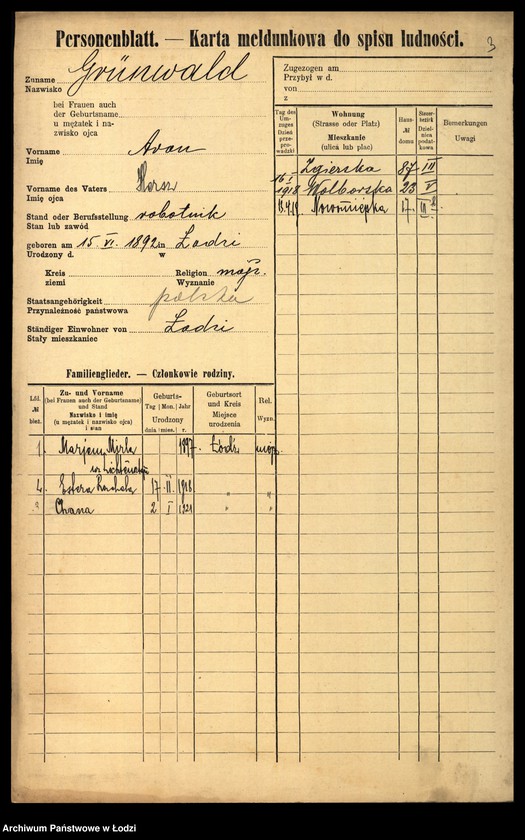 Personenblatt. — Karta meldunkowa do spisu ludności.
3
Zuname Grünwald
Nazwisko
bei Frauen auch
der Geburtsname
u mężatek i na-
zwisko ojca
Vorname Aron
Imię
Vorname des Vaters Hersz
Imię ojca
Stand oder Berufsstellung robotnik
Stan lub zawód
geboren am 15 VI. 1892 in Łodzi
Urodzony d. w
Kreis Religion mojż.
ziemi Wyznanie
Staatsangehörigkeit polska
Przynależność państwowa
Ständiger Einwohner von Łodzi
Stały mieszkaniec
Zugezogen am
Przybył w d.
von
z
Tag des Um-zuges Dzień prze-pro-wadzki
Wohnung (Strasse oder Platz) Mieszkanie (ulica lub plac)
Haus- № domu
Bemerkungen Uwagi
Zgierska 87 III
16 I 1918 Wolborska 23 V
17
Familienglieder. — Członkowie rodziny.
Lfd. № bież.
Zu- und Vorname (bei Frauen auch der Geburtsname) und Stand Nazwisko i imię (u mężatek i nazwisko ojca) i stan
Geburts- Tag Mon. Jahr Urodzony dnia mies. r.
Geburtsort und Kreis Miejsce urodzenia
Rel. Wyzn.
1. Marjem Mirla 1897. Łódź mojż.
Estera Ruchla 17 II 1918 " "
" Chana 2 I 1921 " "
Archiwum Państwowe w Łodzi